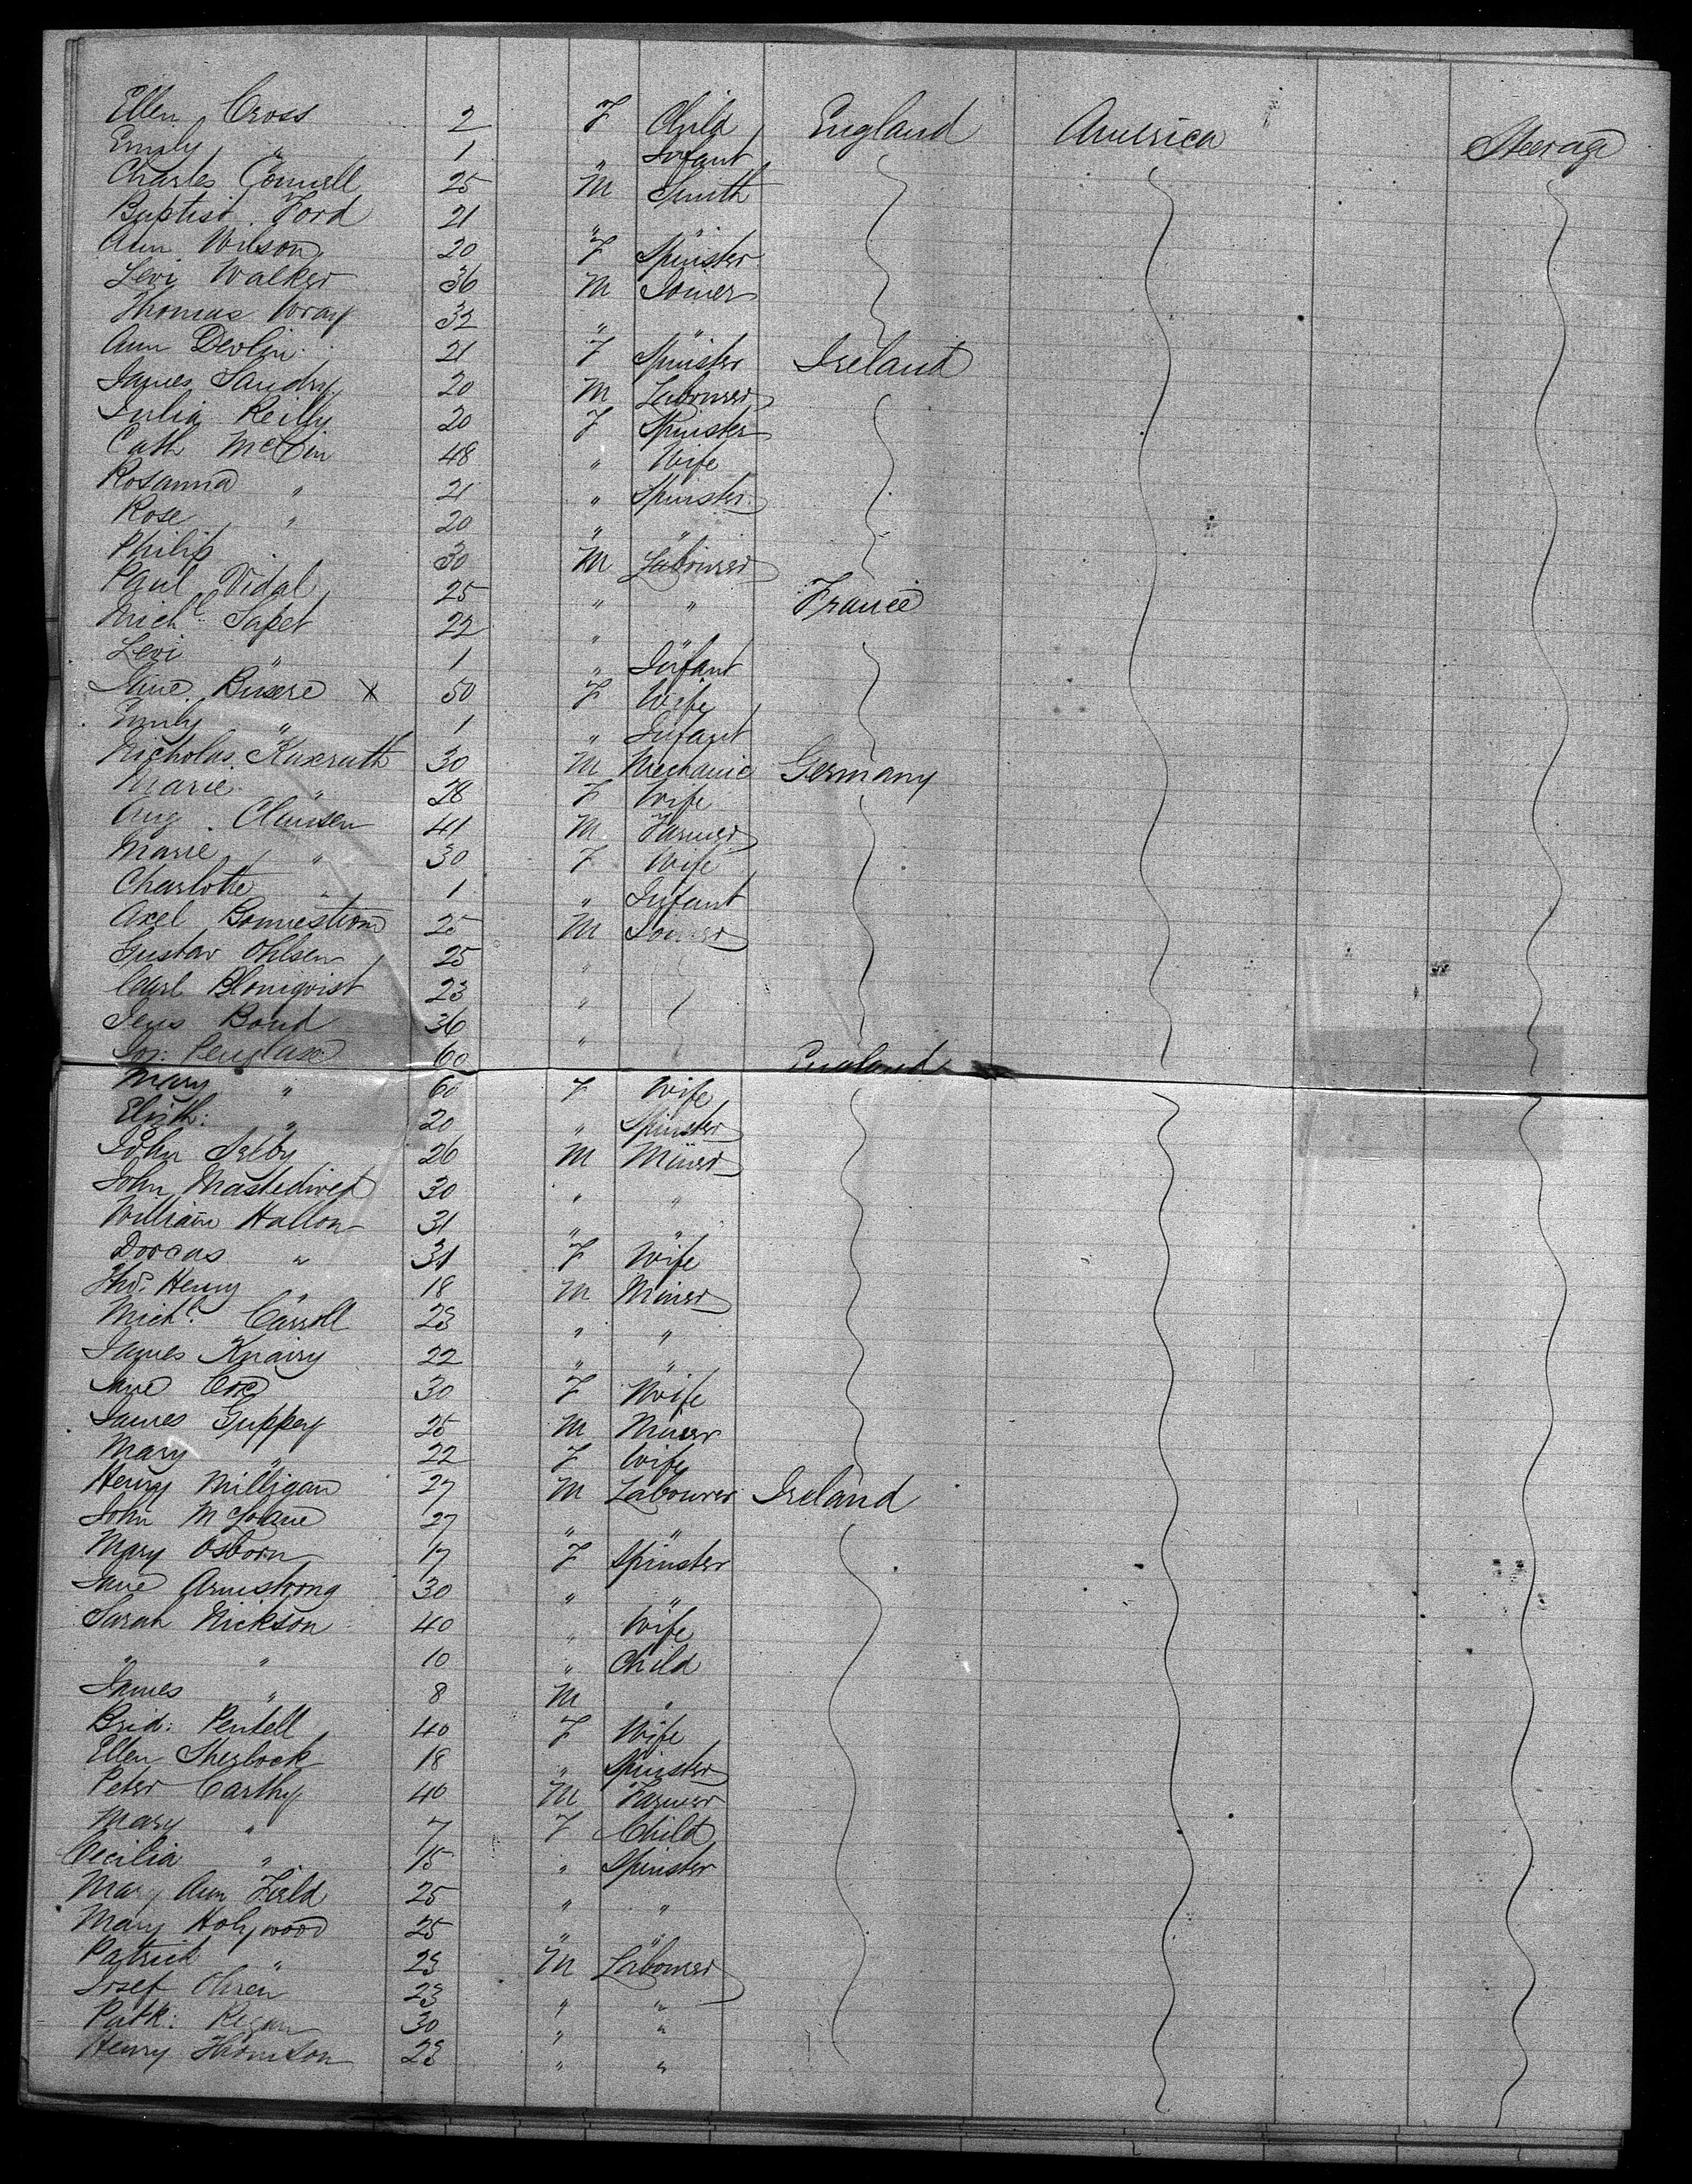 Ellen Cross 2 F Child England America Steerage
Emily " 1 " Infant
Charles Connell 25 M Smith
Baptist Ford 21 " "
Ann Wilson 20 F Spinster
Levi Walker 36 M Joiner
Thomas Wray 32 " "
Ann Devlin 21 F Spinster Ireland
James Sandry 20 M Labourer
Julia Reilly 20 F Spinster
Cath 48 " Wife
Rosanna " 21 " Spinster
Rose " 20 " "
Philip 30 M Labourer
Paul Vidal 25 " " France
Michl Sapet 22 "
Levi " 1 " Infant
Jane Busere x 50 F Wife
Emily " 1 " Infant
Nicholas Kuxruth 30 M Mechanic Germany
Marie " 28 F Wife
Aug. Clausen 41 M Farmer
Marie " 30 F Wife
Charlotte " 1 " Infant
Axel Bonnestrom 25 M Joiner
Gustav Ohlsen 25 "
Carl Blomqvist 23 "
Jens Bond 36 "
Jos: Penglase 60 England
Mary " 60 F Wife
Elizth: " 20 " Spinster
John Selby 26 M Miner
John 30 " "
William Hallon 31 " "
Dorcas " 31 F Wife
Thos. Henry " 18 M Miner
Michl. Carroll 23 " "
James 22 " "
Jane 30 F Wife
James Guppey 25 M Miner
Mary " 22 F Wife
Henry Milligan 27 M Labourer Ireland
John 27 " "
Mary Osborn 17 F Spinster
Jane Armstrong 30 " "
Sarah Nickson 40 " Wife
" " 10 " Child
James " 8 M "
Brid: Pentell 40 F Wife
Ellen Sherlock 18 " Spinster
Peter Carthy 40 M Farmer
Mary " 7 F Child
Cecilia " 15 " Spinster
Mary Ann Field 25 " "
Mary Holywood 25 " "
Patrick " 23 M Labourer
Josef Ohren 23 " "
Patk: Regan 30 " "
Henry Thomson 23 " "